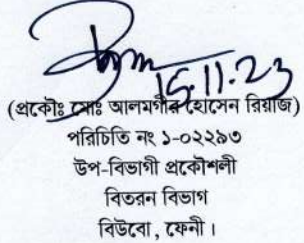 15.11.23
(প্রকৌঃ মোঃ আলমগীর হোসেন রিয়াজ)
পরিচিতি নং ১-০২২৯৩
উপ-বিভাগী প্রকৌশলী
বিতরন বিভাগ
বিউবো, ফেনী।